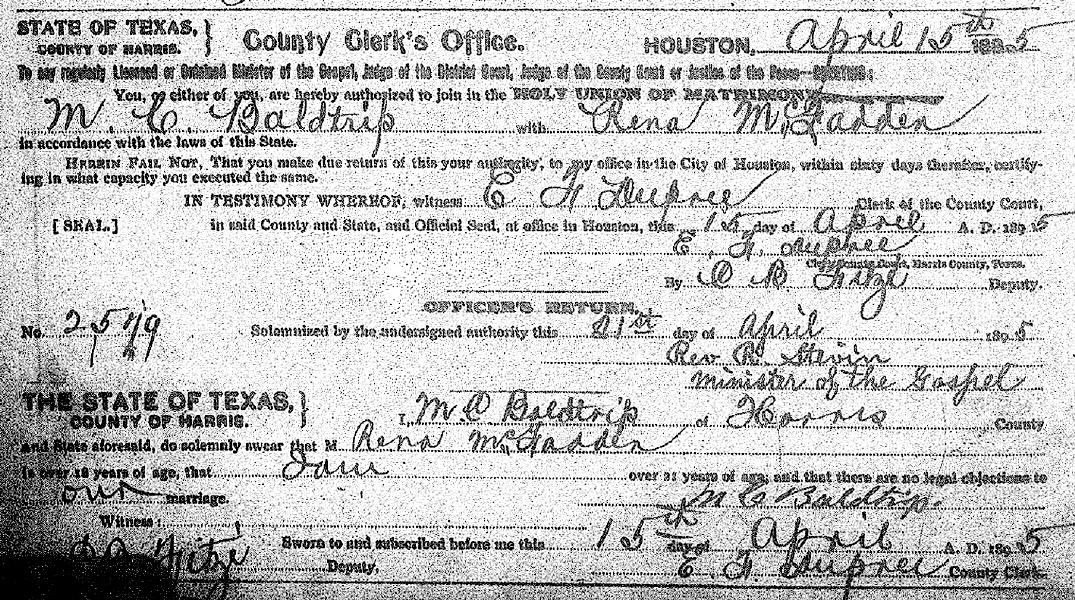 STATE OF TEXAS, }
COUNTY OF HARRIS.
County Clerk's Office.
HOUSTON, April 15th 1895
To any regularly Licensed or Ordained Minister of the Gospel, Judge of the District Court, Judge of the County Court or Justice of the Peace—GREETING:
You, or either of you, are hereby authorized to join in the HOLY UNION OF MATRIMONY
M. C. Baldtrip with Rena McFadden
in accordance with the laws of this State.
HEREIN FAIL NOT, That you make due return of this your authority, to my office in the City of Houston, within sixty days thereafter, certify-
ing in what capacity you executed the same.
IN TESTIMONY WHEREOF, witness E F Dupree Clerk of the County Court,
[SEAL.] in said County and State, and Official Seal, at office in Houston, this 15 day of April A. D. 1895
E. F. Dupree
Clerk County Court, Harris County, Texas.
By Fitze Deputy.
OFFICER'S RETURN.
No. Solemnized by the undersigned authority this 21st day of April 1895
Rev R. Stevin
minister of the Gospel
THE STATE OF TEXAS, }
COUNTY OF HARRIS.
I, M C Baldtrip of Harris County
and State aforesaid, do solemnly swear that M Rena McFadden
is over 18 years of age, that I am over 21 years of age; and that there are no legal objections to
our marriage. M C Baldtrip.
Witness:
Fitze Deputy, Sworn to and subscribed before me this 15th day of April A. D. 1895
E F Dupree County Clerk.